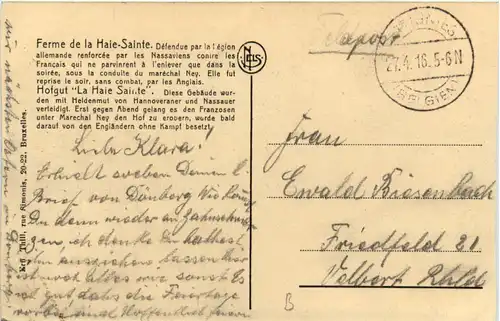 Ferme de la Haie-Sainte. Défendue par la Légion
allemande renforcée par les Nassaviens contre les
Français qui ne parvinrent à l'enlever que dans la
soirée, sous la conduite du maréchal Ney. Elle fut
reprise le soir, sans combat, par les Anglais.
Hofgut "La Haie Sainte". Diese Gebäude wur-
den mit Heldenmut von Hannoveraner und Nassauer
verteidigt. Erst gegen Abend gelang es den Franzosen
unter Marechal Ney den Hof zu erobern, wurde bald
darauf von den Engländern ohne Kampf besetzt.
NELS
Ern. Thill, rue Simonis, 20-22, Bruxelles.
Liebe Klara!
Erhielt soeben Deinen l.
Brief von Dönberg
Du denn wieder an Zahnschmer-
zen, ich denke Du hattest
ist noch alles wie sonst. Es
ist gut dass die Feiertage
vorbei sind. Hoffentlich feiern
wir nächsten Ostern in
Feldpost
27.4.16. 5-6 N
(BELGIEN)
Frau
Ewald Biesenbach
Friedfeld 21
Velbert Rhld
B